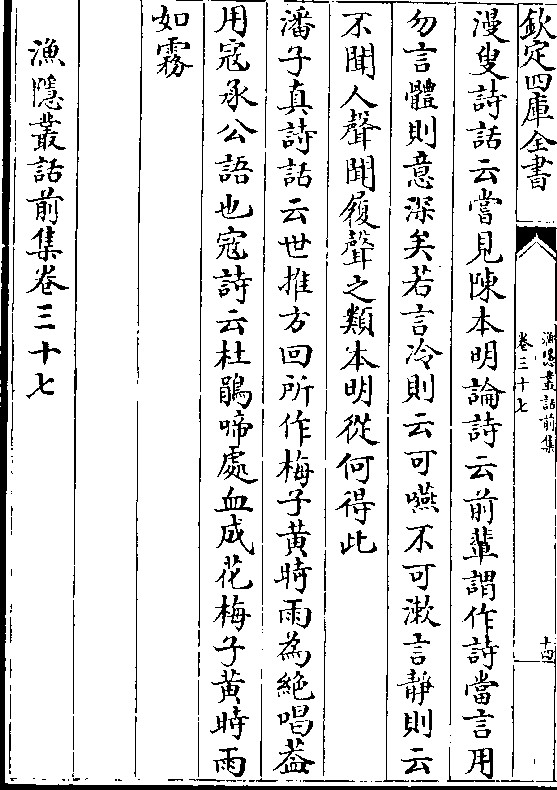 欽定四庫全書
漁隱叢話前集
卷三十七
十四
漫叟詩話云嘗見陳本明論詩云前輩謂作詩當言用
勿言體則意深矣若言冷則云可嚥不可漱言靜則云
不聞人聲聞履聲之類本明從何得此
潘子真詩話云世推方回所作梅子黄時雨為絶唱葢
用寇承公語也寇詩云杜鵑啼處血成花梅子黄時雨
如霧
漁隱叢話前集卷三十七